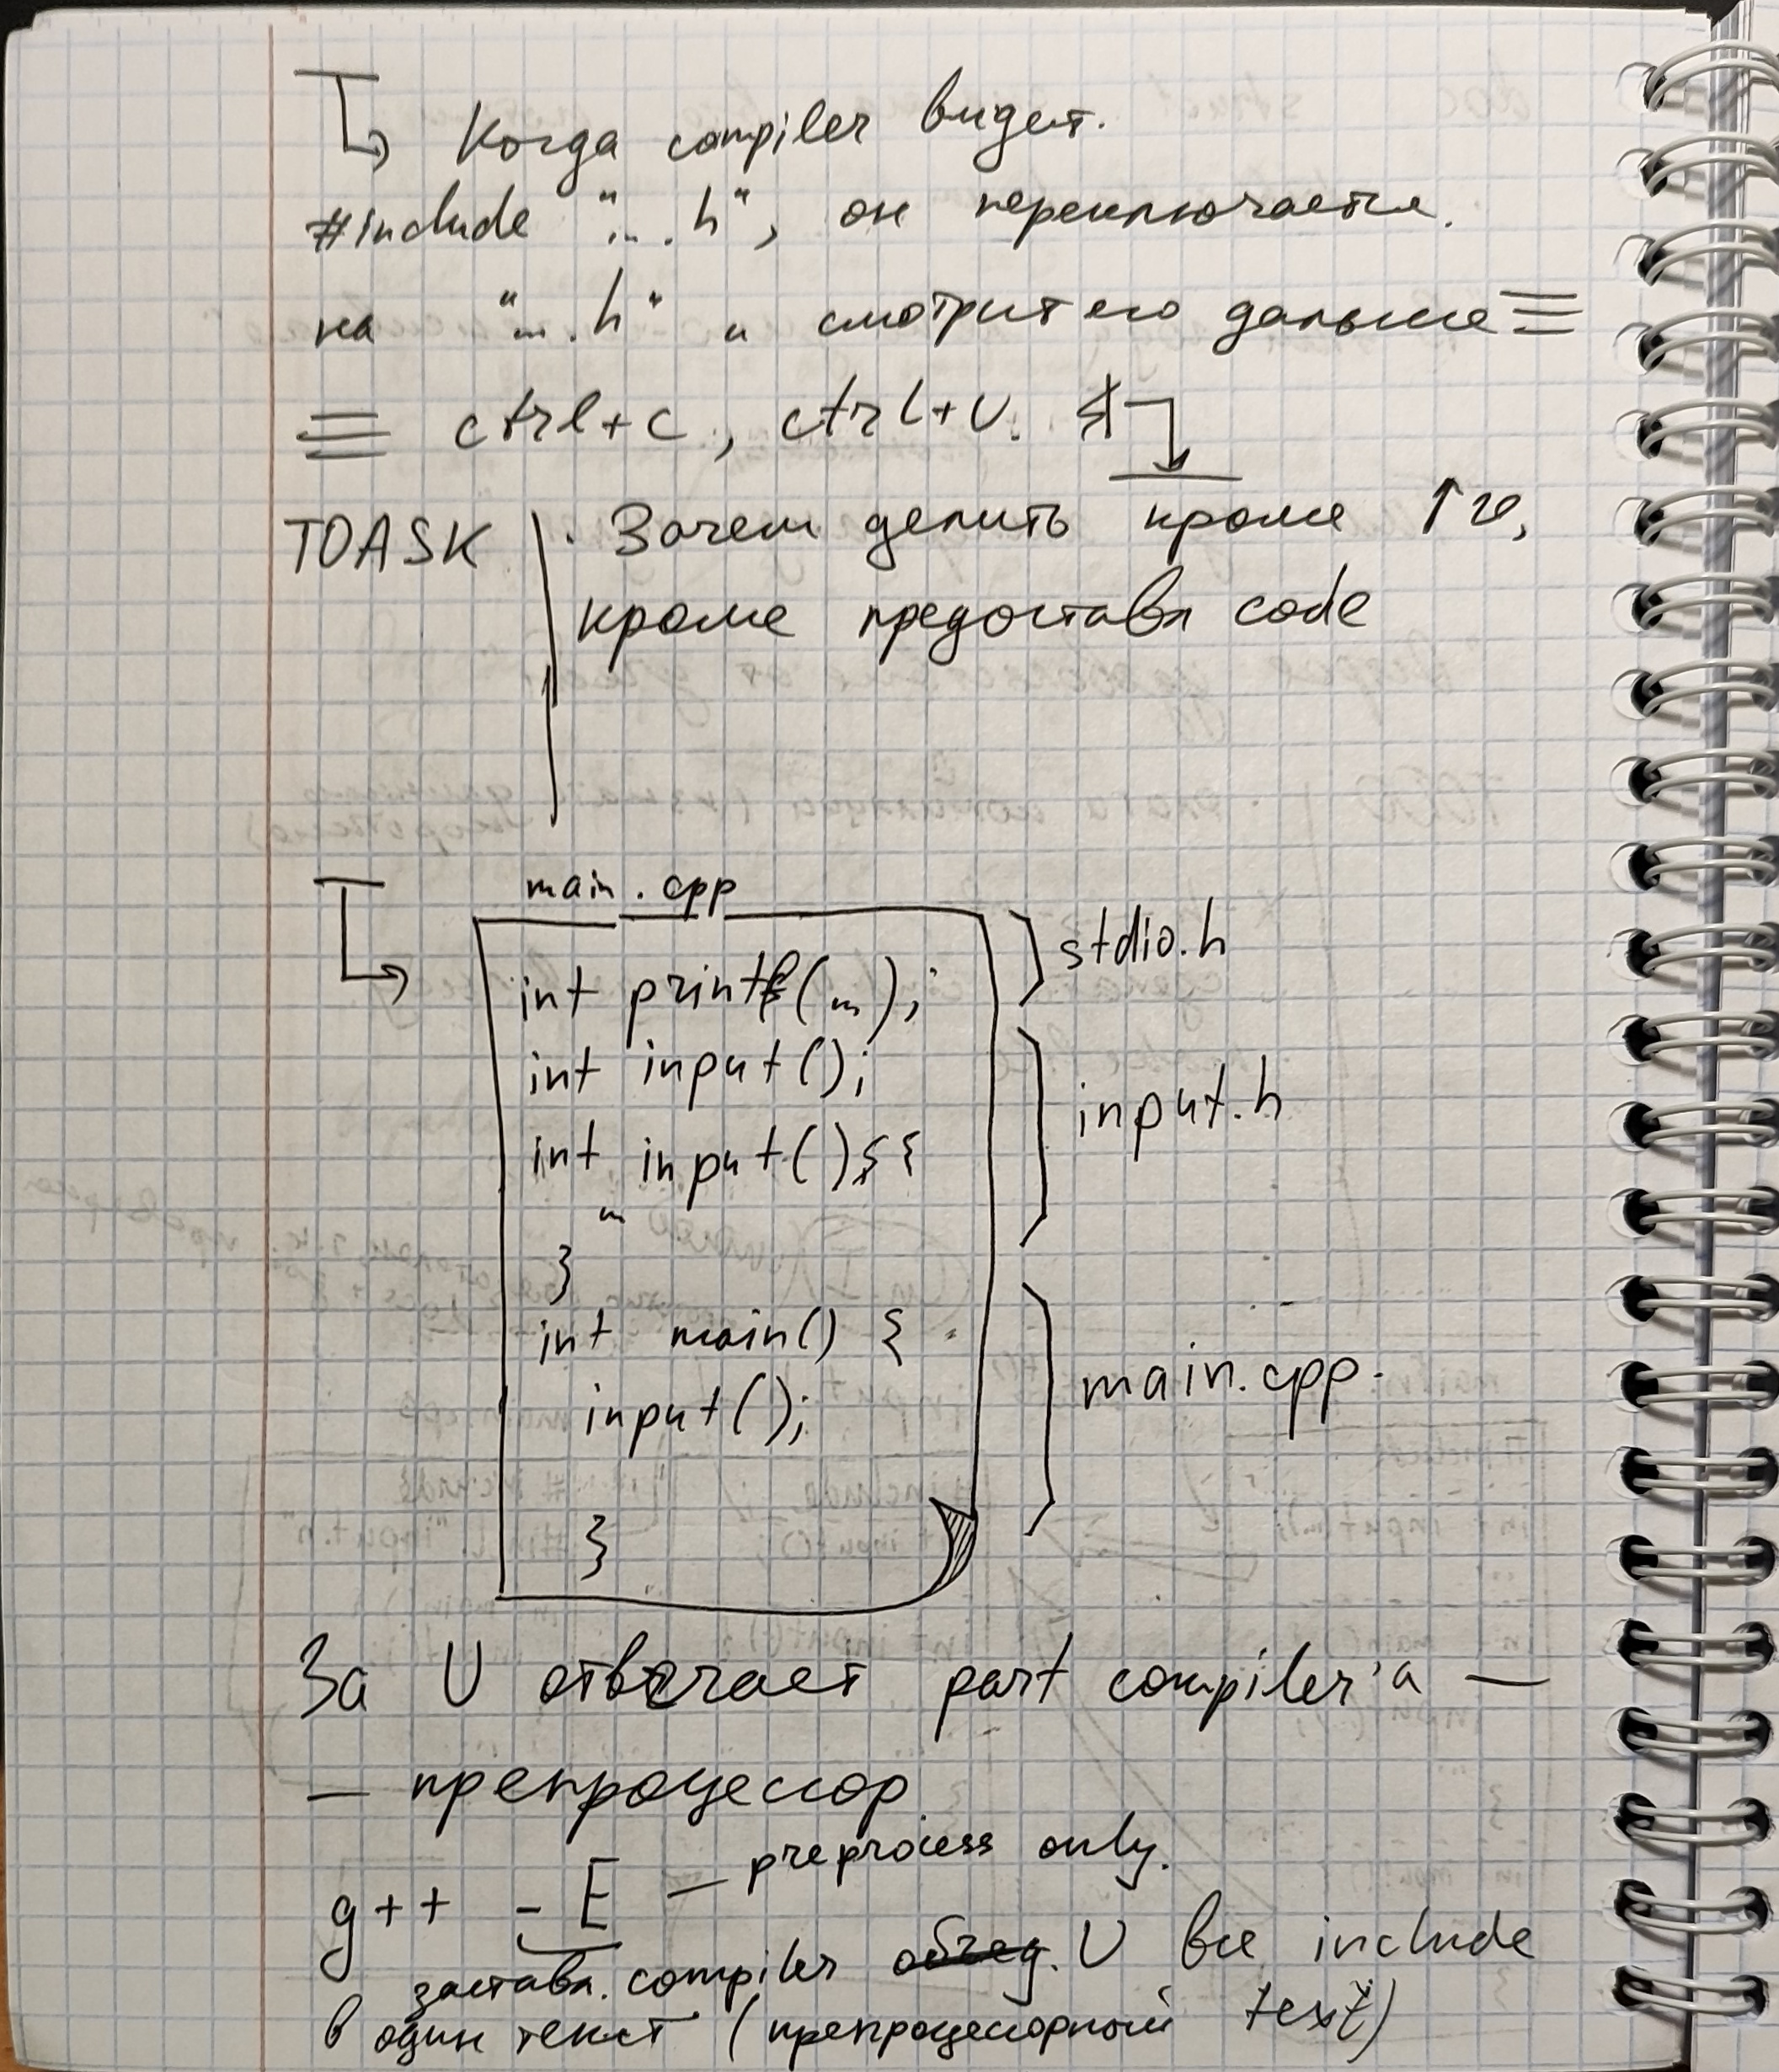 Когда compiler видит.
#include "... .h", он переключается.
на "... .h" и смотрит его дальше ≡
≡ ctrl+c, ctrl+v.
TOASK · Зачем делить кроме ↑
кроме предоставл code
main.cpp
int printf(...); stdio.h
int input();
input.h
int input() {
...
}
int main() {
main.cpp.
input();
}
За U отвечает part compiler'а —
— препроцессор
g++ -E — preprocess only.
заставл. compiler U все include
в один текст (препроцессорный text)